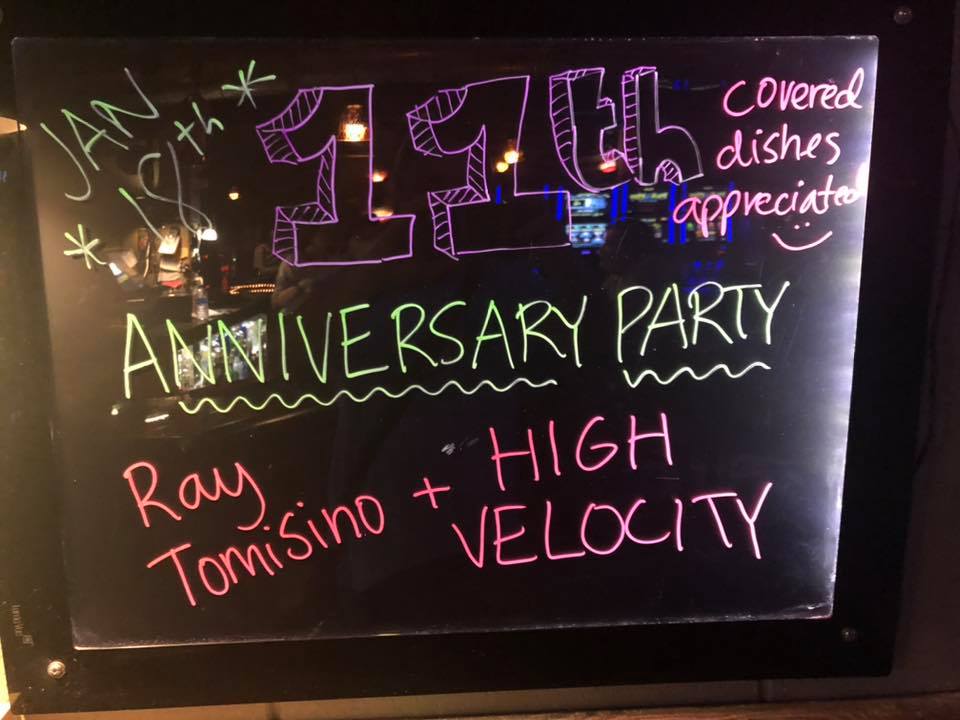 JAN
18th
11th
covered
dishes
appreciated
ANNIVERSARY PARTY
Ray
Tomisino + HIGH
VELOCITY